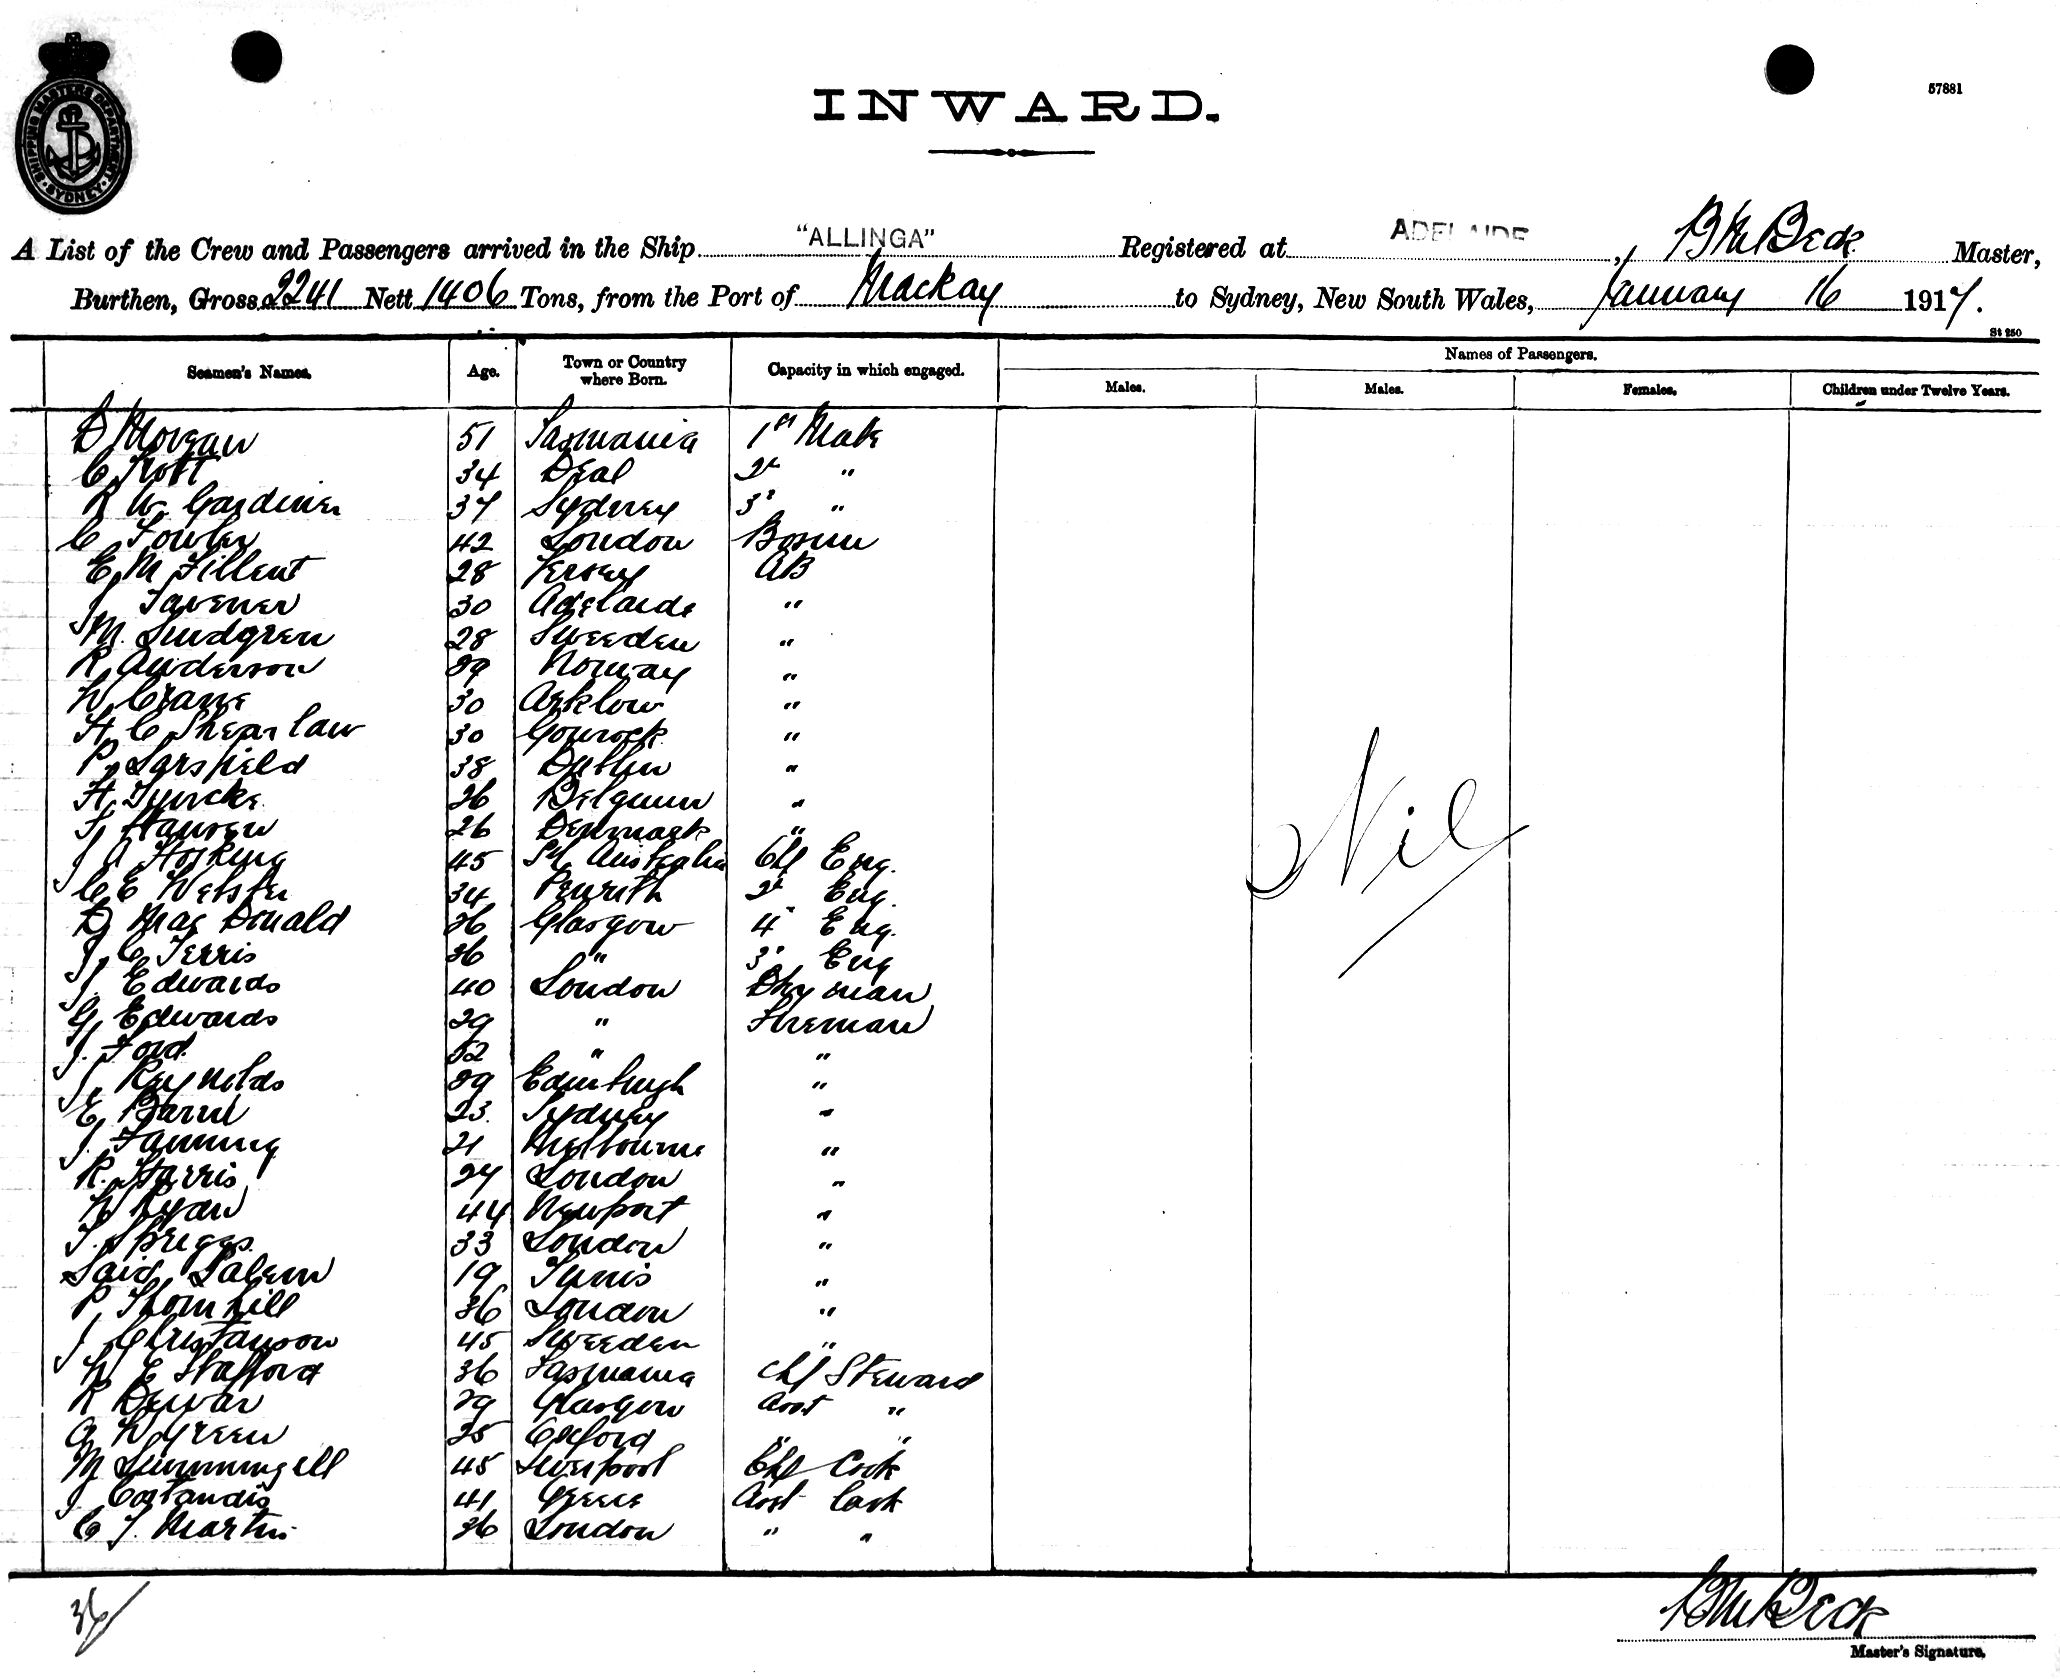 SHIPPING MASTERS DEPARTMENT · SYDNEY ·
57881
INWARD.
A List of the Crew and Passengers arrived in the Ship "ALLINGA" Registered at ADELAIDE, Beck Master,
Burthen, Gross 2241 Nett 1406 Tons, from the Port of Mackay to Sydney, New South Wales, January 16 1917.
St 250
Seamen's Names. Age. Town or Country where Born. Capacity in which engaged. Names of Passengers.
Males. Males. Females. Children under Twelve Years.
D Morgan 51 Tasmania 1st Mate
C Trott 34 Deal 2d "
R W Gardiner 37 Sydney 3d "
C Fowler 42 London Bosun
E M Fillent 28 Jersey AB
J Tavener 30 Adelaide "
M. Lindgren 28 Sweeden "
R Anderson 29 Norway "
W Crane 30 Arklow "
H C Shearlaw 30 Gourock "
P Sarsfield 38 Dublin "
H 36 Belgium "
Hansen 26 Denmark "
J A Hosking 45 Sth Australia Chf Eng.
C E Webster 34 Penrith 2d Eng.
D Mac Donald 36 Glasgow 4 Eng.
J C Ferris 36 " 3d Eng
J. Edwards 40 London Dkyman
G Edwards 29 " Fireman
J. Ford 52 " "
J Reynolds 29 Edinburgh "
E 23 Sydney "
J. Fanning 21 Melbourne "
R. Harris 27 London "
W Ryan 44 Newport "
T. Spriggs 33 London "
Said Salem 19 Tunis "
P Thornhill 36 London "
J Christanson 45 Sweeden "
W E Stafford 36 Tasmania Chf Steward
R Dewar 29 Glasgow Asst "
A W Green 25 Oxford " "
M 45 Liverpool Chf Cook
J 41 Greece Asst Cook
C J. Martin 36 London " "
Nil
36
Beck
Master's Signature.